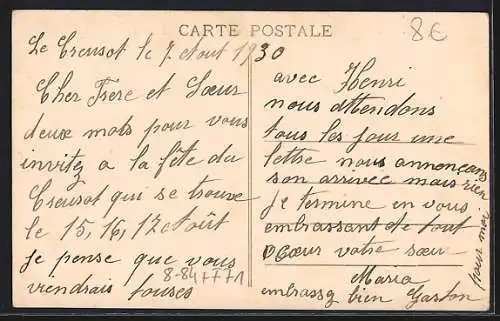 CARTE POSTALE
8€
Le Creusot le 7 Aout 1930
Cher Frere et Sœur
deux mots pour vous
invitez a la fête du
Creusot qui se trouve
le 15, 16, 17 Août
je pense que vous
viendrais touses
8-84
avec Henri
nous attendons
tous les jour une
lettre nous annonçans
son arrivée mais rien
Je termine en vous
embrassant de tout
Cœur votre sœur
Maria
embrassez bien Gaston
pour moi